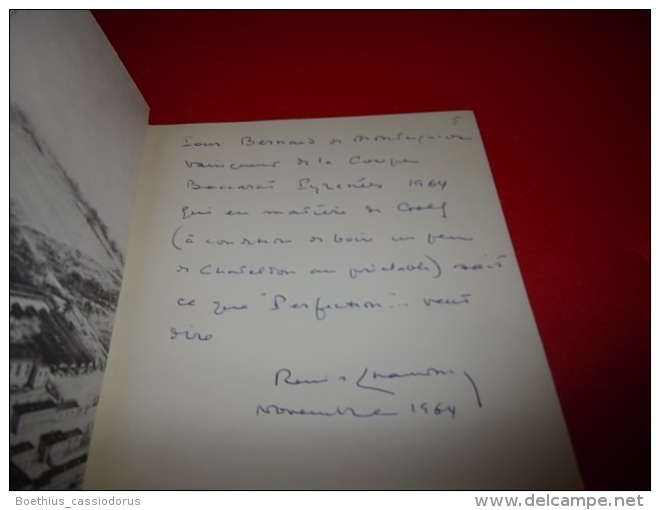 Pour Bernard de
vainqueur de la Coupe
Baccarat Pyrénées 1964
qui en matière de Golf
(à condition de boire un peu
de Chateldon au préalable) sait
ce que "Perfection"... veut
dire
Novembre 1964
Boethius_cassiodorus
delcampe.net